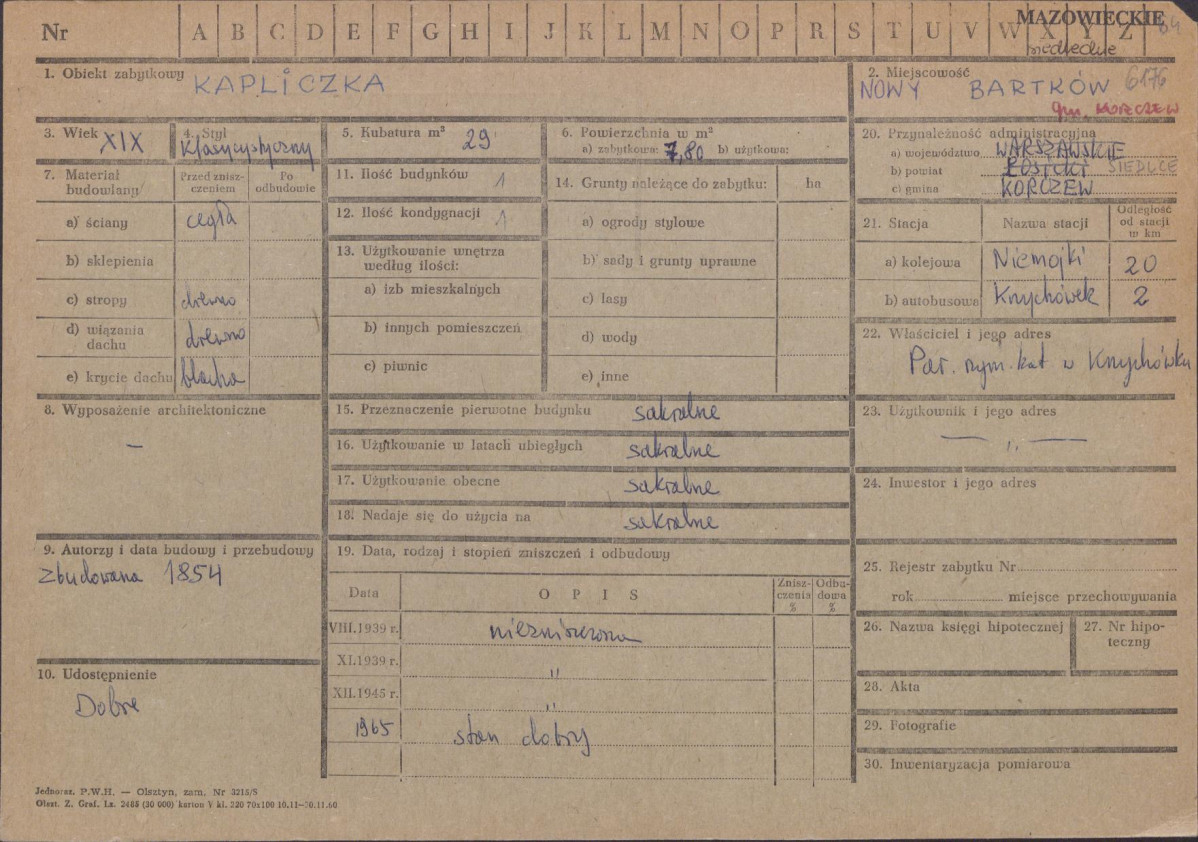 Nr A B C D E F G H I J K L M N O P R S T U V W X Y Z
MAZOWIECKIE
siedleckie
1. Obiekt zabytkowy KAPLICZKA
2. Miejscowość 6176
NOWY BARTKÓW
gm. KORCZEW
3. Wiek XIX
4. Styl
klasycystyczny
5. Kubatura m³ 29
6. Powierzchnia w m²
a) zabytkowa: 7,80 b) użytkowa:
20. Przynależność administracyjna
a) województwo WARSZAWSKIE
b) powiat ŁOSICKI SIEDLCE
c) gmina KORCZEW
7. Materiał budowlany
Przed znisz-
czeniem
Po
odbudowie
a) ściany cegła
b) sklepienia
c) stropy drewno
d) wiązania
dachu drewno
e) krycie dachu blacha
11. Ilość budynków 1
12. Ilość kondygnacji 1
13. Użytkowanie wnętrza
według ilości:
a) izb mieszkalnych
b) innych pomieszczeń
c) piwnic
14. Grunty należące do zabytku: ha
a) ogrody stylowe
b) sady i grunty uprawne
c) lasy
d) wody
e) inne
21. Stacja Nazwa stacji
Odległość
od stacji
w km
a) kolejowa Niemojki 20
b) autobusowa Knychówek 2
22. Właściciel i jego adres
Par. rzym. kat w Knychówku
8. Wyposażenie architektoniczne
—
15. Przeznaczenie pierwotne budynku sakralne
16. Użytkowanie w latach ubiegłych sakralne
17. Użytkowanie obecne sakralne
18. Nadaje się do użycia na sakralne
23. Użytkownik i jego adres
— „ —
24. Inwestor i jego adres
9. Autorzy i data budowy i przebudowy
zbudowana 1854
10. Udostępnienie
Dobre
19. Data, rodzaj i stopień zniszczeń i odbudowy
Data OPIS
Znisz-
czenia
%
Odbu-
dowa
%
VIII.1939 r. niezniszczona
XI.1939 r. „
XII.1945 r. „
1965 stan dobry
25. Rejestr zabytku Nr
rok miejsce przechowywania
26. Nazwa księgi hipotecznej
27. Nr hipo-
teczny
28. Akta
29. Fotografie
30. Inwentaryzacja pomiarowa
Jednoraz. P.W.H. — Olsztyn, zam. Nr 3215/S
Olszt. Z. Graf. Lz. 2485 (30 000) karton V kl. 220 70x100 16.11—30.11.60